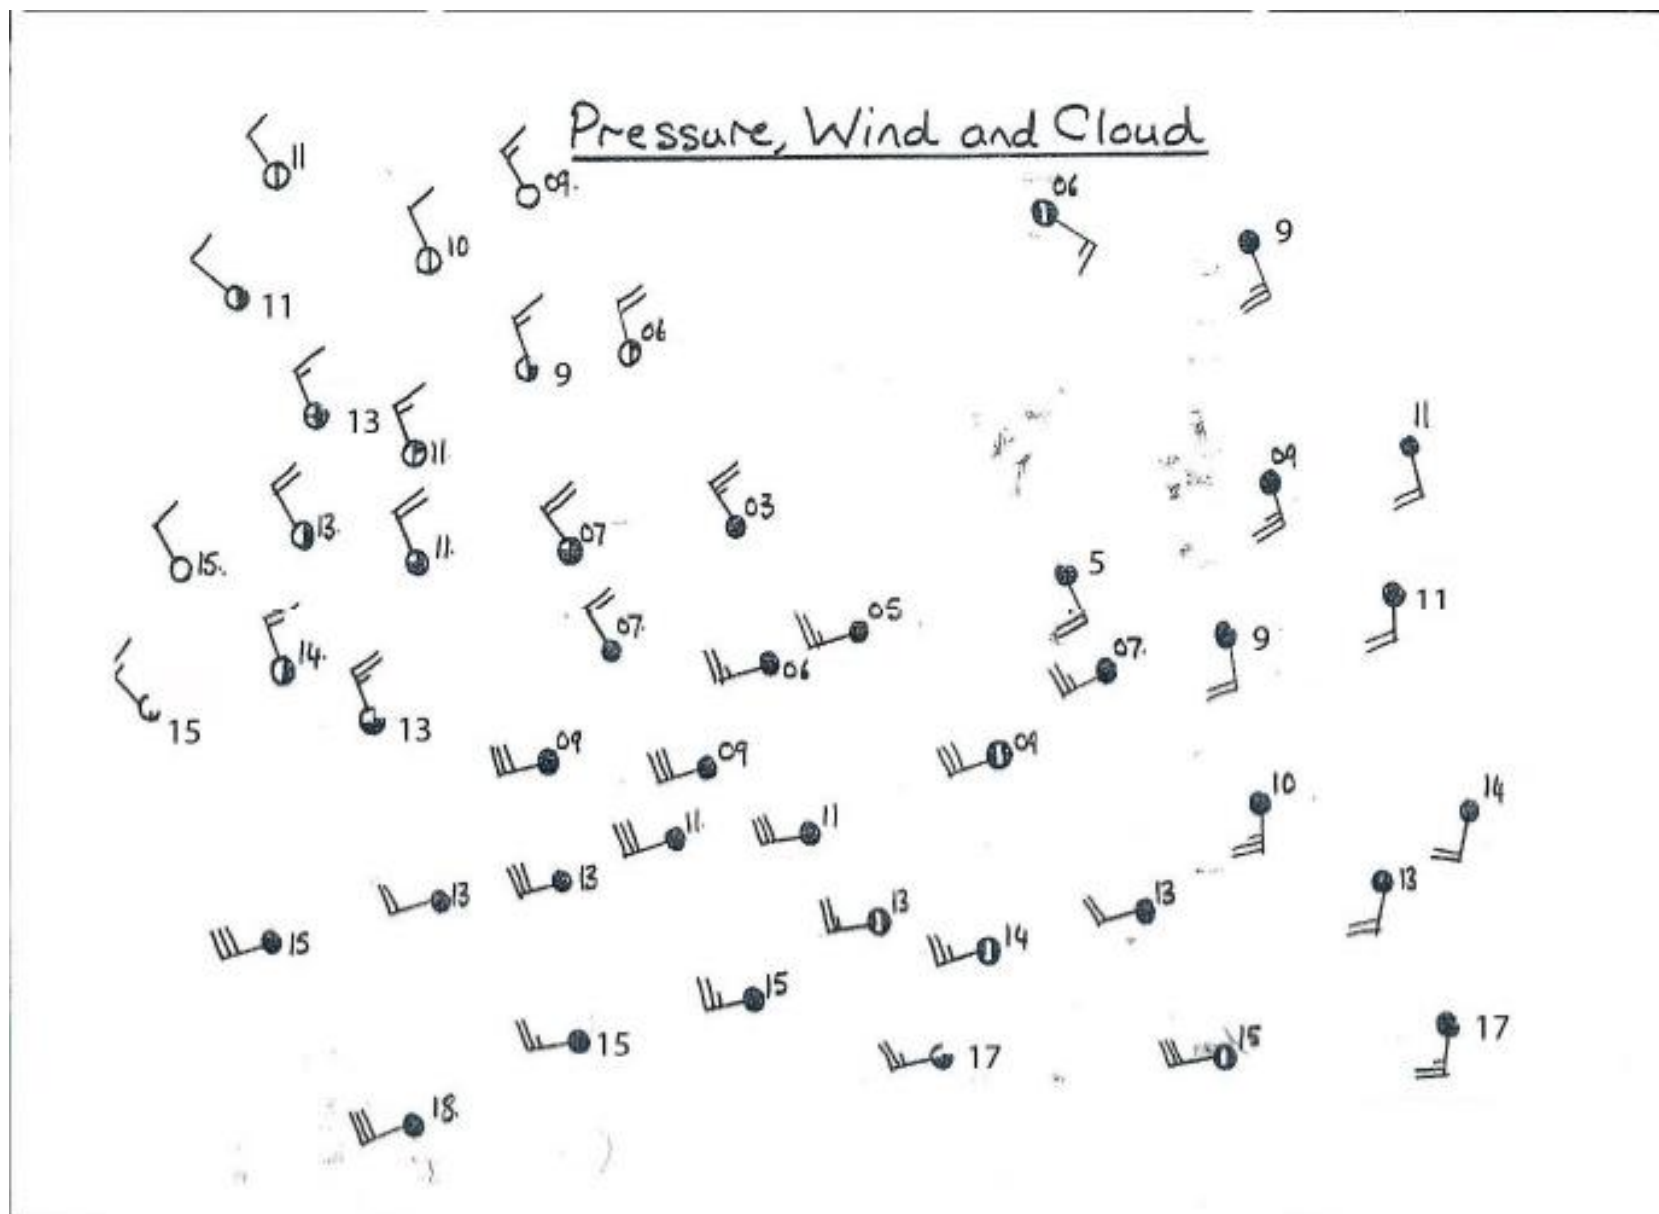 Pressure, Wind and Cloud
11
09.
06
10
9
11
06
9
13
11.
11
09
13.
03
15.
11.
07
5
11
05
07.
9
14.
06
07.
15
13
09
09
09
10
14
11.
11
13
13
13
13
13
15
14
15
17
15
17
15
18.